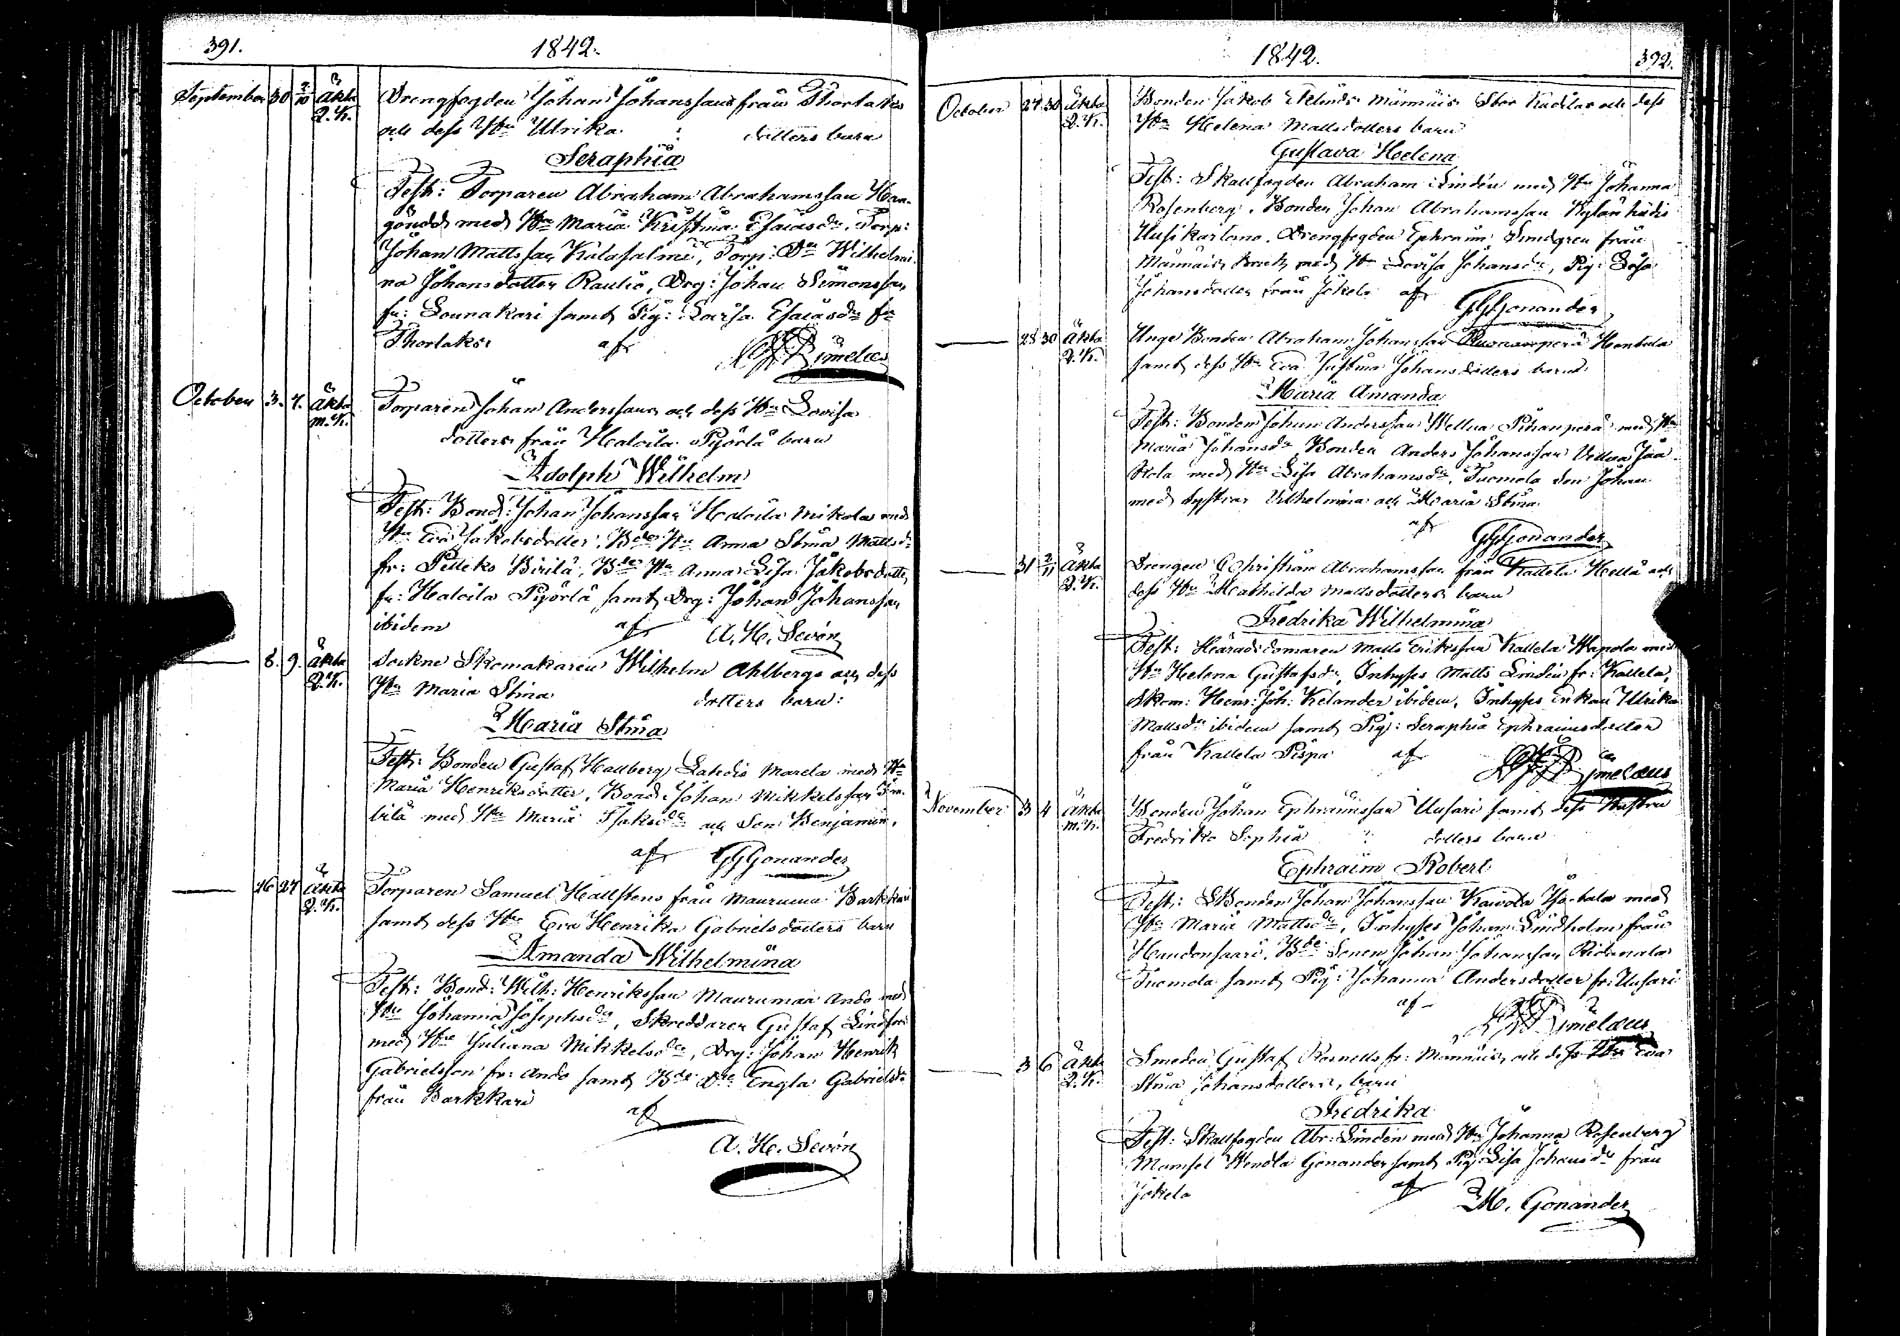 391.
1842.
September 30 2/10 Äkta Drengfogden Johan Johanssons från Thorlaks
Q.K. och dess Hu Ulrika : dotters barn
Seraphia
Test: Torparen Abraham Abrahamsson
med Hu Maria Kristina Esaiasdr, Torp:
Johan Mattsson Kalasalmi, Torp: Dn Wilhelmi-
na Johansdotter Raulio, Drg: Johan Simonsson
fr: Lounakari samt Pig: Lovisa Esaiasdr fr
Thorlaks af
October 3. 7. Äkta Torparen Johan Anderssons och dess Hu Lovisa
m.K. dotters från Haloila Pyörlä barn
Adolph Wilhelm
Test: Bond: Johan Johansson Haloila Mikola med
Hu Eva Jakobsdotter, Bde Hu Anna Stina Mattsdr
fr: Pilleks Birilä, Bde Hu Anna Lisa Jakobsdotter
fr: Haloila Pyörlä samt Drg: Johan Johansson
ibidem af A. H. Sevón
8. 9. Äkta Sockne Skomakaren Wilhelm Ahlbergs och dess
Q.K. Hu Maria Stina dotters barn:
Maria Stina
Test: Bonden Gustaf Hallberg Lahdis Marela med Hu
Maria Henriksdotter, Bond: Johan Mikkelsson
med Hu Maria Isaksdr och Son Benjamin.
af GGGonander
16 27 Äkta Torparen Samuel Hallstens från Maurumaa Barkkari
Q.K. samt dess Hu Eva Henrika Gabrielsdotters barn
Amanda Wilhelmina
Test: Bond: Wilh: Henriksson Maurumaa Ando med
Hu Johanna Josephsdr, Skreddaren Gustaf Lindfors
med Hu Juliana Mikkelsdr, Drg: Johan Henrik
Gabrielsson fr: Ando samt Bde Dn Engla Gabrielsdr
från Barkkari af
A. H. Sevón
1842.
392.
October 27 30 Äkta Bonden Jakob Eklunds Männäis Stor Kuckilas och dess
Q.K. Hu Helena Mattsdotters barn
Gustava Helena
Test: Skallfogden Abraham Lindén med Hu Johanna
Rosenberg, Bonden Johan Abrahamsson Kylänhidis
Uusikartano, Drengfogden Ephraim Lindgren från
Männäis Bruk med Hu Lovisa Johansdr, Pig: Lisa
Johansdotter från Jokela af GGGonander
28 30 Äkta Unge Bonden Abraham Johansson Hontula
Q.K. samt dess Hu Eva Justina Johansdotters barn
Maria Amanda
Test: Bonden Johan Andersson Wellua Pihanperä med Hu
Maria Johansdr, Bonden Anders Johansson Vellua Jaa-
kola med Hu Lisa Abrahamsdr, Tuomola son Johan
med systrar Vilhelmina och Maria Stina
af GGGonander
31 2/11 Äkta Drengen Christian Abrahamsson från Kallela Hellä och
Q.K. dess Hu Mathilda Mattsdotters barn
Fredrika Wilhelmina
Test: Häradsdomaren Matts Eriksson Kallela Wapola med
Hu Helena Gustafsdr, Inhyses Matts Lindén fr: Kallela,
Skom: Henr: Joh: Kelander ibidem, Inhyses Enkan Ulrika
Mattsdr ibidem samt Pig: Seraphia Ephraimsdotter
från Kallela Pispa af
November 3 4 Äkta Bonden Johan Ephraimsson Uusari samt dess Hustru
m.K. Fredrika Sophia dotters barn
Ephraim Robert
Test: Bonden Johan Johansson Kaivola Yhatala med
Hu Maria Mattsdr, Inhyses Johan Lindholm från
Haudonsaari, Bde Sonen Johan Johansson
Tuomola samt Pig: Johanna Andersdotter fr: Uusari
af
3 6 Äkta Smeden Gustaf Rosnells fr: Männäis och dess Hu Eva
Q.K. Stina Johansdotters, barn
Fredrika
Test: Skallfogden Abr: Lindén med Hu Johanna Rosenberg
Mamsel Wendla Gonander samt Pig: Lisa Johansdr från
Jokela af M. Gonander